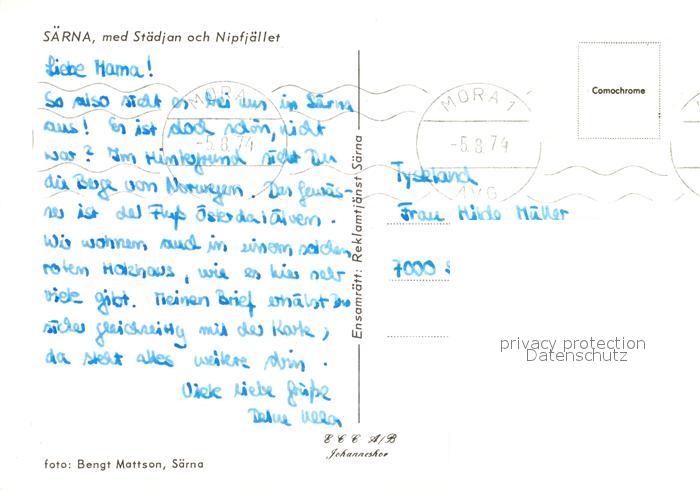 SÄRNA, med Städjan och Nipfjället
Liebe Mama!
So also sieht es bei uns in Särna
aus! Es ist doch schön, nicht
war? Im Hintergrund sieht Du
die Berge von Norwegen. Das Gewäs-
ser ist der Fluß Österdalälven.
Wir wohnen auch in einem solchen
roten Holzhaus, wie es hier sehr
viele gibt. Meinen Brief erhälst Du
sicher gleichzeitig mit der Karte,
da steht alles weitere drin.
Viele liebe Grüße
Deine Ulla
foto: Bengt Mattson, Särna
Ensamrätt: Reklamtjänst Särna
ECC A/B
Johanneshov
MORA
-5.8.74
MORA 1
-5.8.74
AVG
Comochrome
Tyskland
Frau Hilde Müller
7000
privacy protection
Datenschutz